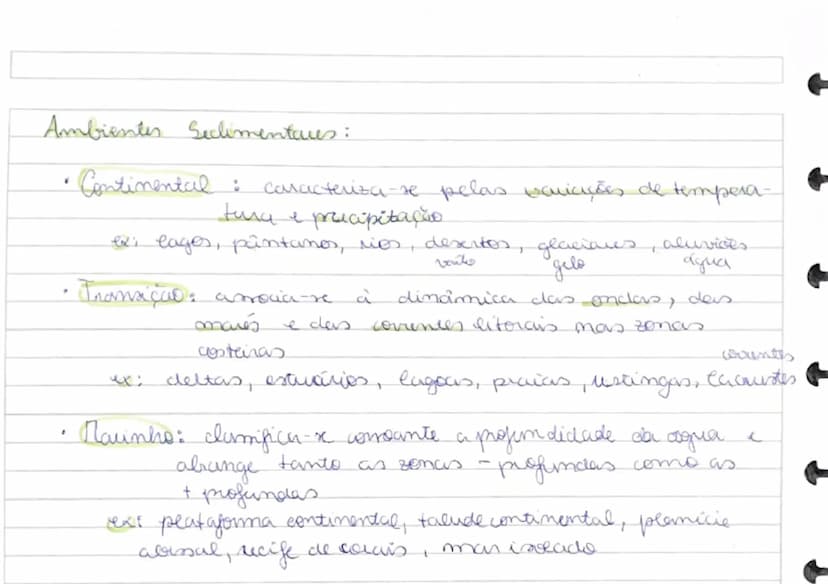 Ambientes Sedimentares:
• Continental: caracteriza-se pelas variações de tempera-
tura e precipitação
ex: lagos, pântanos, rios, desertos, glaciares, aluviões
vento gelo água
• Transição: associa-se à dinâmica das ondas, das
marés e das correntes litorais nas zonas
costeiras
correntes
ex: deltas, estuários, lagoas, praias, restingas,
• Marinho: classifica-se consoante a profundidade da água e
abrange tanto as zonas - profundas como as
+ profundas
ex: plataforma continental, talude continental, planície
abissal, recife de corais, mar isolado